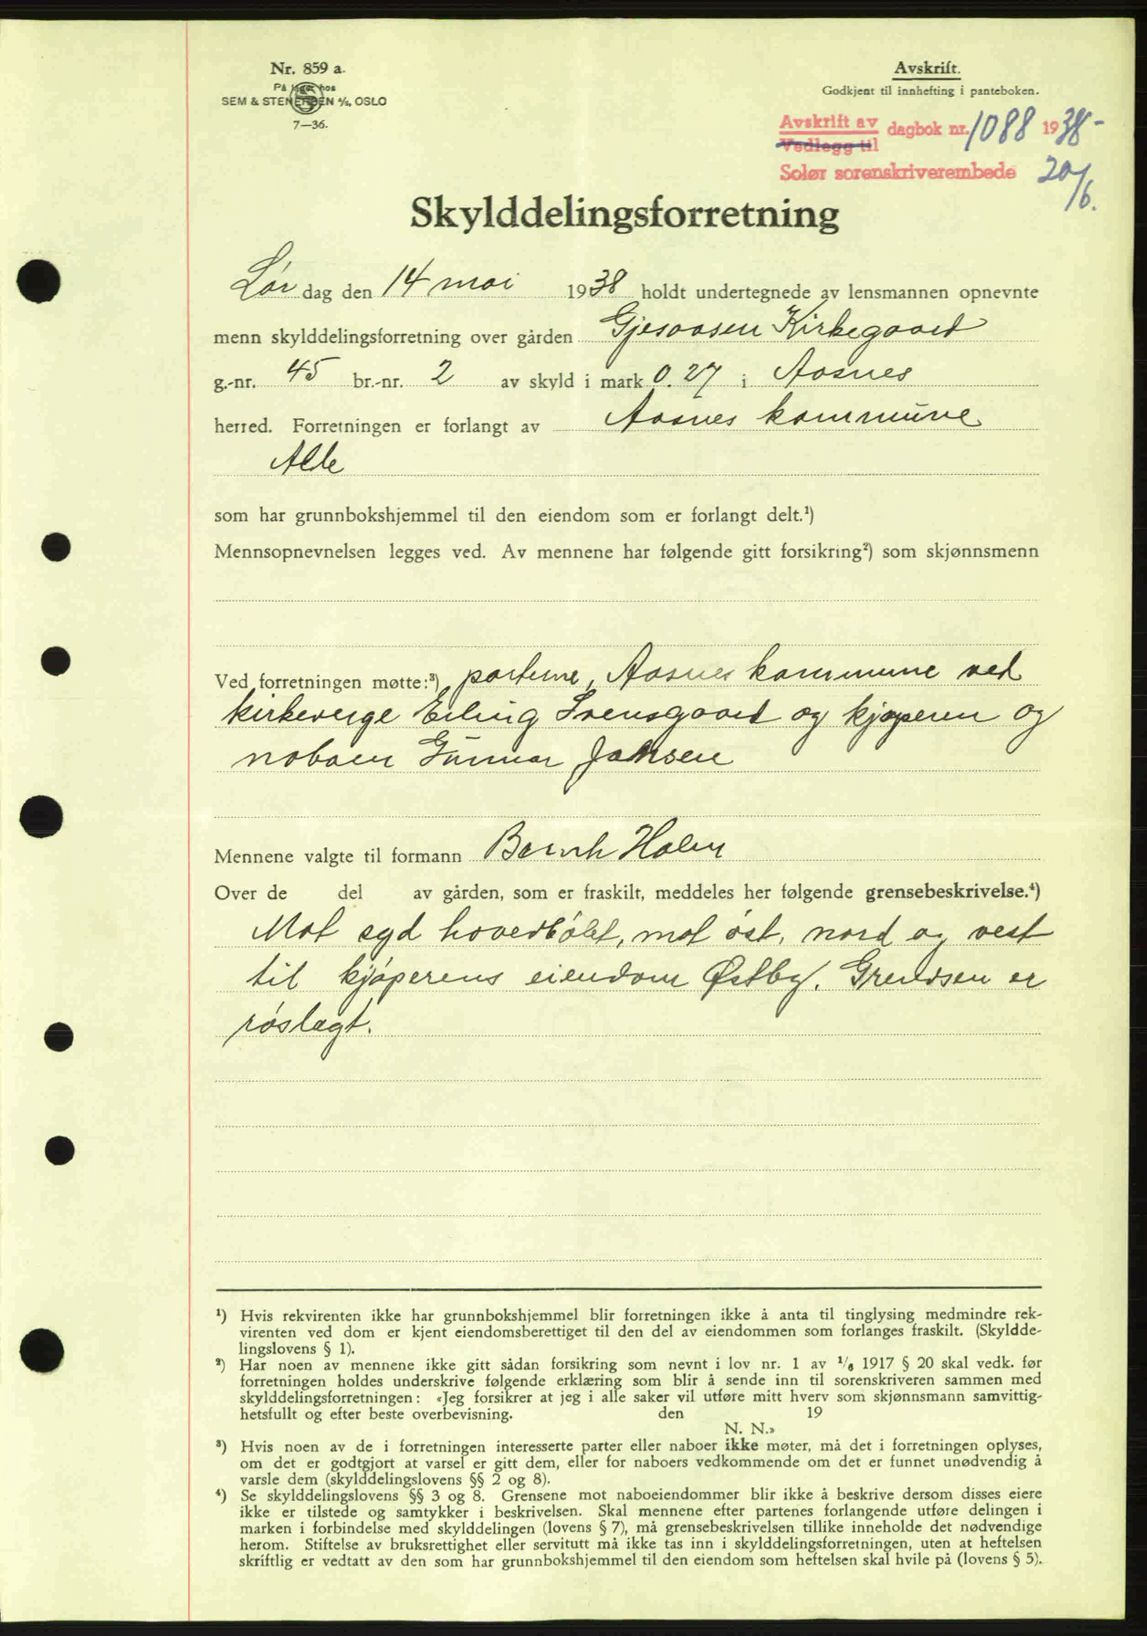 Nr. 859 a.
På lager hos
SEM & STENERSEN A/S, OSLO
7—36.
Avskrift.
Godkjent til innhefting i panteboken.
Avskrift av
Vedlegg til
dagbok nr. 1088 1938-
Solør sorenskriverembede 20/6.
Skylddelingsforretning
Lørdag den 14 mai 1938 holdt undertegnede av lensmannen opnevnte
menn skylddelingsforretning over gården Gjesaasen Kirkegaard
g.-nr. 45 br.-nr. 2 av skyld i mark 0.27 i Aasnes
herred. Forretningen er forlangt av Aasnes kommune
Alle
som har grunnbokshjemmel til den eiendom som er forlangt delt.¹)
Mennsopnevnelsen legges ved. Av mennene har følgende gitt forsikring²) som skjønnsmenn
Ved forretningen møtte:³) parterne, Aasnes kommune ved
kirkeverge Erling Svensgaard og kjøperen og
naboen Gunnar Jansen
Mennene valgte til formann Bernh Holen
Over de del av gården, som er fraskilt, meddeles her følgende grensebeskrivelse.⁴)
Mot syd hovedbølet, mot øst, nord og vest
til kjøperens eiendom Østby. Grendsen er
røslagt.
¹) Hvis rekvirenten ikke har grunnbokshjemmel blir forretningen ikke å anta til tinglysing medmindre rek-
virenten ved dom er kjent eiendomsberettiget til den del av eiendommen som forlanges fraskilt. (Skyldde-
lingslovens § 1).
²) Har noen av mennene ikke gitt sådan forsikring som nevnt i lov nr. 1 av 1/6 1917 § 20 skal vedk. før
forretningen holdes underskrive følgende erklæring som blir å sende inn til sorenskriveren sammen med
skylddelingsforretningen: «Jeg forsikrer at jeg i alle saker vil utføre mitt hverv som skjønnsmann samvittig-
hetsfullt og efter beste overbevisning. den 19
N. N.»
³) Hvis noen av de i forretningen interesserte parter eller naboer ikke møter, må det i forretningen oplyses,
om det er godtgjort at varsel er gitt dem, eller for naboers vedkommende om det er funnet unødvendig å
varsle dem (skylddelingslovens §§ 2 og 8).
⁴) Se skylddelingslovens §§ 3 og 8. Grensene mot naboeiendommer blir ikke å beskrive dersom disses eiere
ikke er tilstede og samtykker i beskrivelsen. Skal mennene efter partenes forlangende utføre delingen i
marken i forbindelse med skylddelingen (lovens § 7), må grensebeskrivelsen tillike inneholde det nødvendige
herom. Stiftelse av bruksrettighet eller servitutt må ikke tas inn i skylddelingsforretningen, uten at heftelsen
skriftlig er vedtatt av den som har grunnbokshjemmel til den eiendom som heftelsen skal hvile på (lovens § 5).